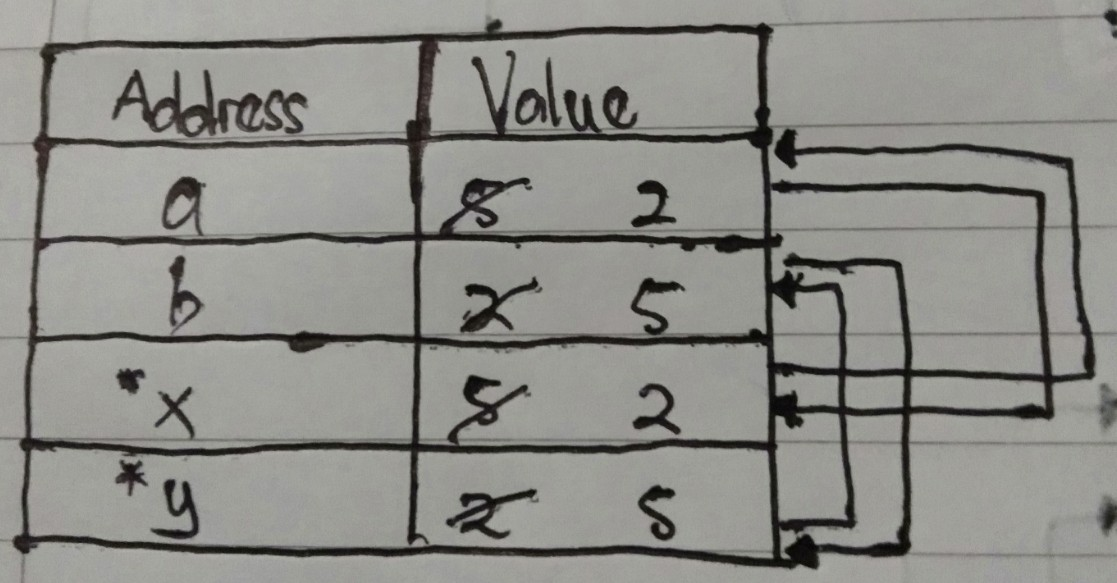 Address Value
a 5 2
b 2 5
*x 5 2
*y 2 5